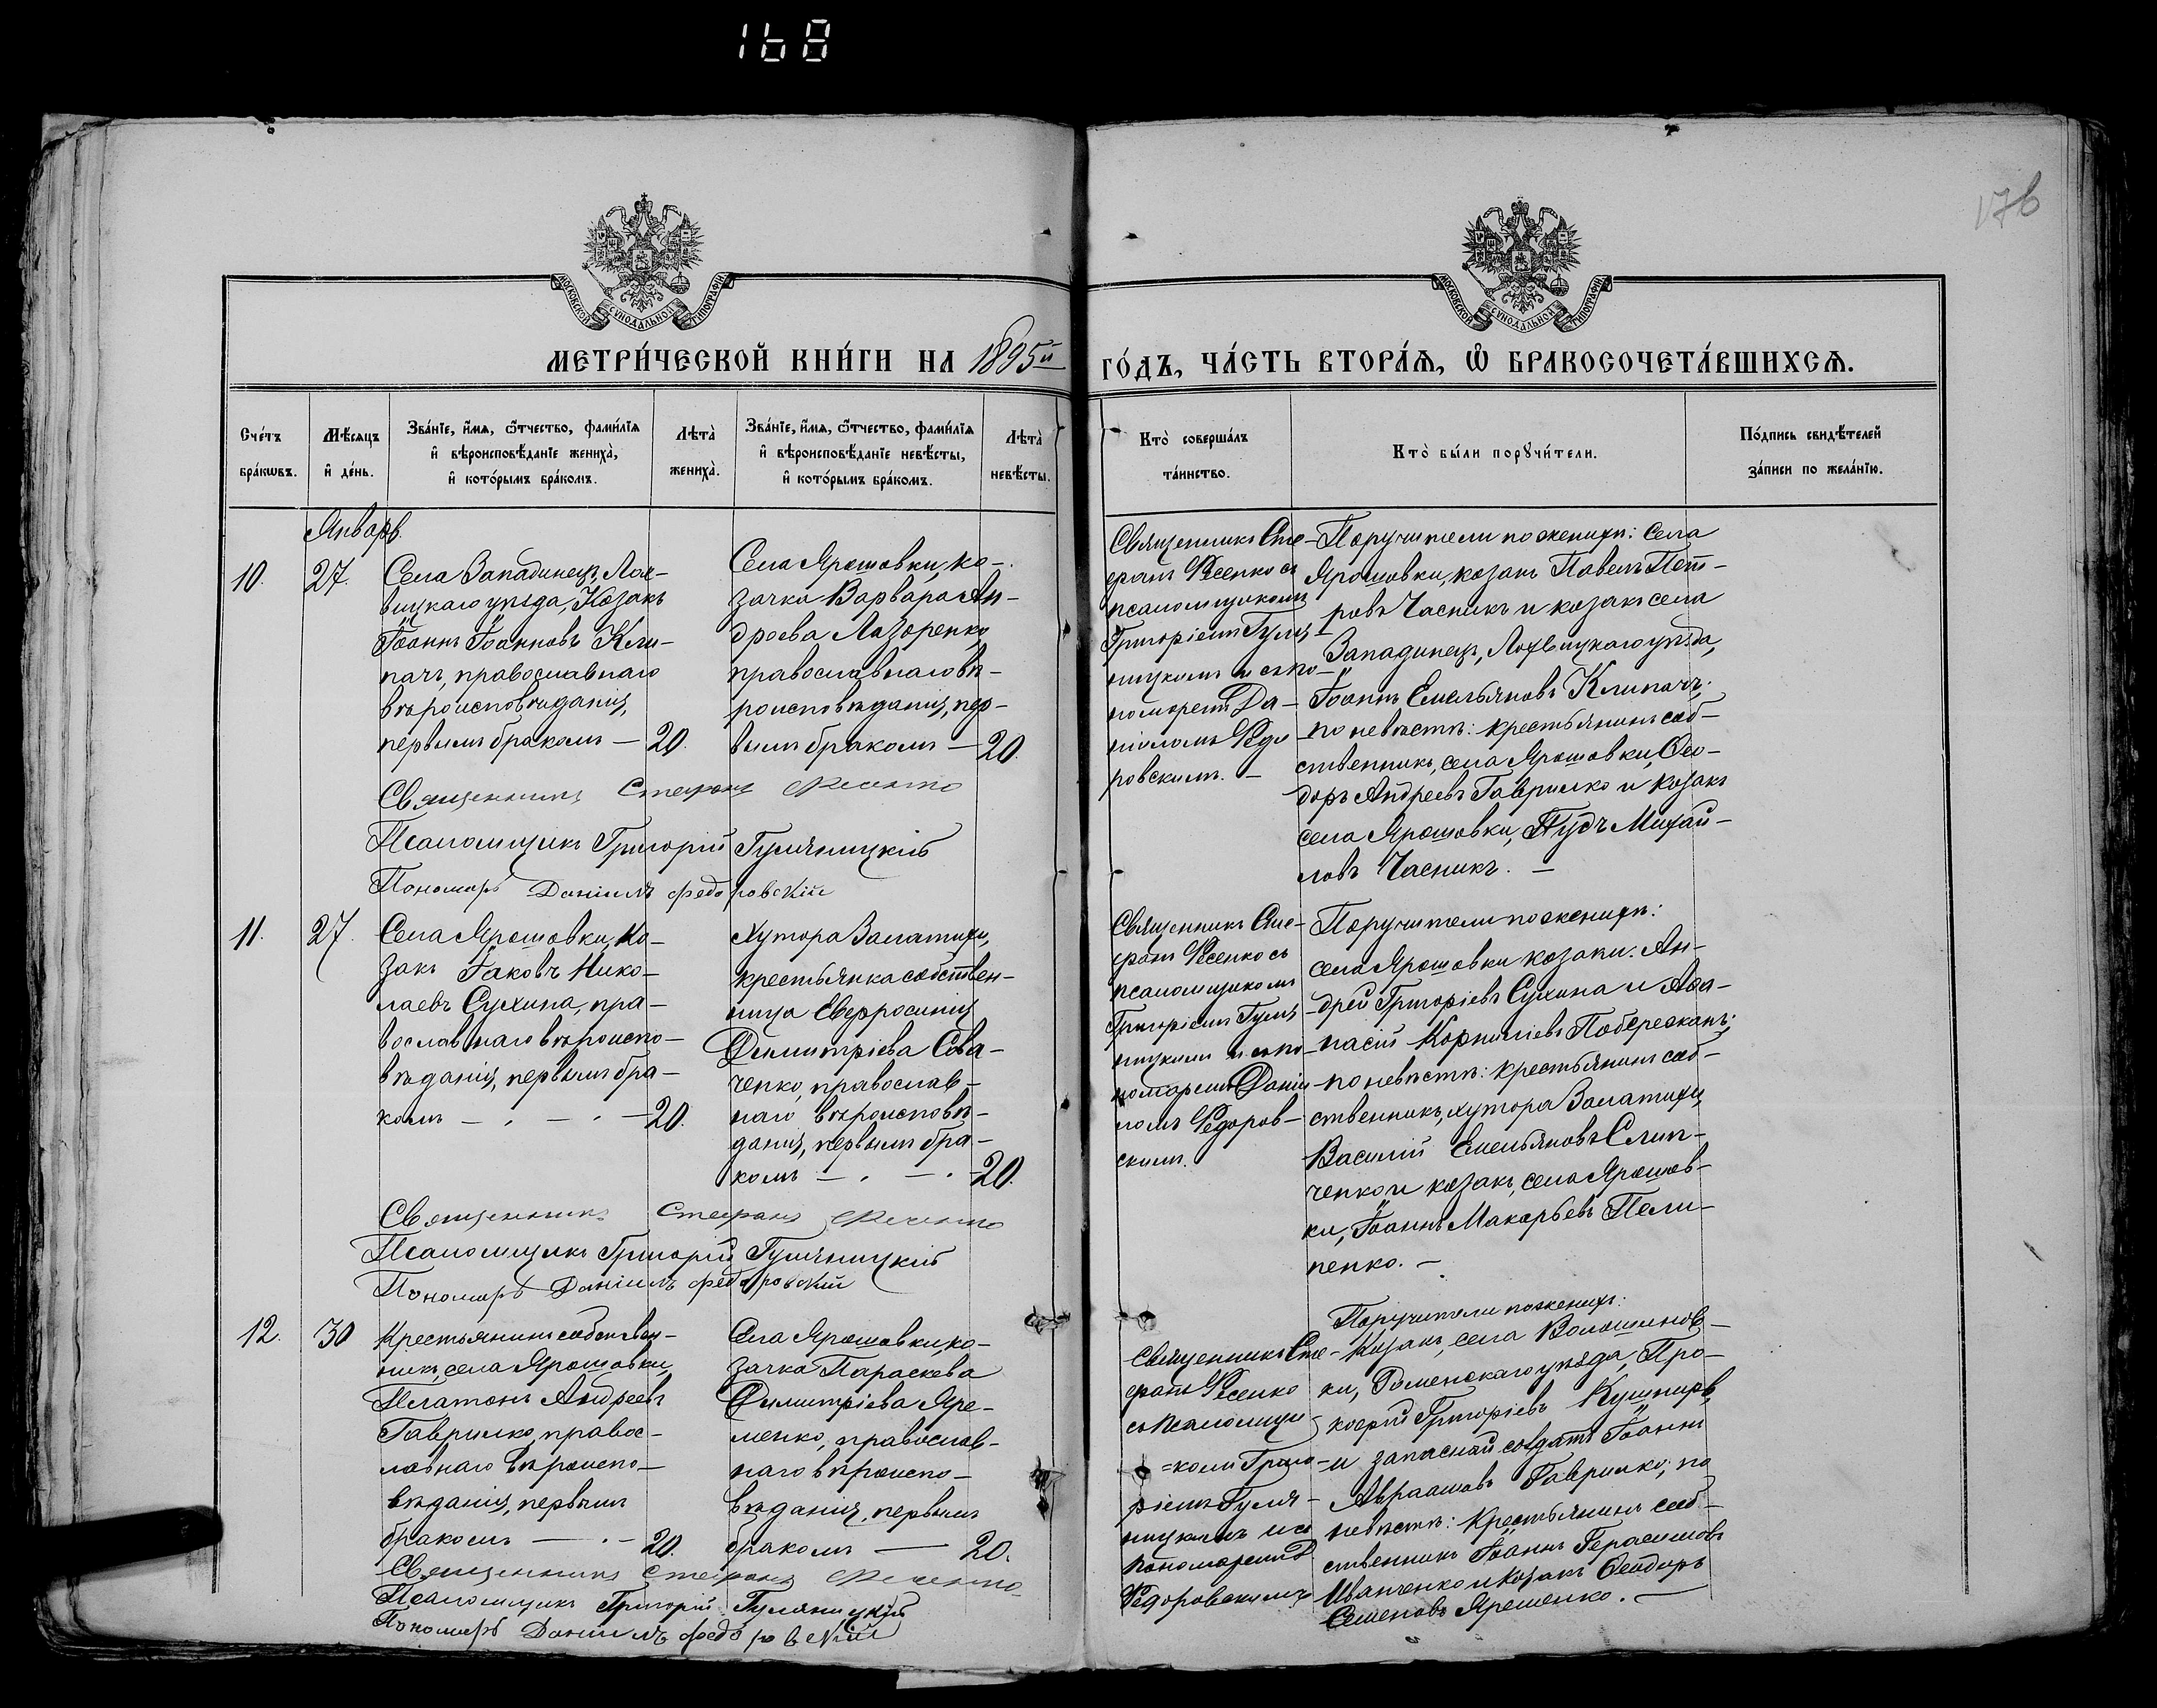 168
176
МОСКОВСКОЙ СѴНОДАЛЬНОЙ ТИПОГРАФІИ
МОСКОВСКОЙ СѴНОДАЛЬНОЙ ТИПОГРАФІИ
МЕТРИ́ЧЕСКОЙ КНИ́ГИ НА 1895й ГО́ДЪ, ЧА́СТЬ ВТОРА́Я, Ѡ БРАКОСОЧЕТА́ВШИХСЯ.
Сче́тъ
бра́кѡвъ.
Мѣ́сяцъ
и҆ де́нь.
Зва́нїе, и҆́мя, ѻ҆́тчество, фами́лїя
и҆ вѣроисповѣ́данїе жениха̀,
и҆ кото́рымъ бра́комъ.
Лѣта̀
жениха̀.
Зва́нїе, и҆́мя, ѻ҆́тчество, фами́лїя
и҆ вѣроисповѣ́данїе невѣ́сты,
и҆ кото́рымъ бра́комъ.
Лѣта̀
невѣ́сты.
Кто̀ соверша́лъ
та́инство.
Кто̀ бы́ли порꙋчи́тели.
По́дпись свидѣ́телей
за́писи по жела́нїю.
Январь.
10.
27.
Села Западинецъ, Лох-
вицкаго уѣзда, Козакъ
Іоаннъ Іоанновъ Кли-
пачъ, православнаго
вѣроисповѣданія,
первымъ бракомъ — 20.
Села Ярошовки, ко-
зачка Варвара Ан-
дреева Лазоренко,
православнаго вѣ-
роисповѣданія, пер-
вымъ бракомъ — 20.
Священникъ Сте-
фанъ Фесенко съ
псаломщикомъ
Григоріемъ Гуля-
ницкимъ и съ по-
номаремъ Да-
ніиломъ Федо
ровскимъ. —
Поручители по женихѣ: села
Ярошовки, козакъ Павелъ Пет-
ровъ Часникъ и козакъ села
Западинецъ, Лохвицкаго уѣзда,
Іоаннъ Емельяновъ Клипачъ;
по невѣстѣ: крестьянинъ соб-
ственникъ, села Ярошовки, Ѳео-
доръ Андреевъ Гаврилко и козакъ
села Ярошовки, Пудъ Михай-
ловъ Часникъ. —
Священникъ Стефанъ Фесенко
Псаломщикъ Григорій Гуляницкій
Пономарь Даніилъ Федоровскій
11.
27.
Села Ярошовки, ко-
закъ Іаковъ Нико-
лаевъ Сухина, пра-
вославнаго вѣроиспо-
вѣданія, первымъ бра-
комъ — . — . — 20.
Хутора Залатихи,
крестьянка собствен-
ница Евфросинія
Димитріева Сова-
ченко, православ-
наго вѣроисповѣ-
данія, первымъ бра-
комъ — . — . — 20.
Священникъ Сте-
фанъ Фесенко съ
псаломщикомъ
Григоріемъ Гуля
ницкимъ и съ по-
номаремъ Даніи-
ломъ Федоров-
скимъ.
Поручители по женихѣ:
села Ярошовки козаки: Ан-
дрей Григоріевъ Сухина и Аѳа-
насій Корниліевъ Побережанъ;
по невѣстѣ: крестьянинъ соб-
ственникъ, хутора Залатихи,
Василій Емельяновъ Слип-
ченко и козакъ, села Ярошов-
ки, Іоаннъ Макарьевъ Пели-
пенко. —
Священникъ Стефанъ Фесенко
Псаломщикъ Григорій Гуляницкій
Пономарь Даніилъ Федоровскій
12.
30
Крестьянинъ собствен-
никъ, села Ярошовки,
Платонъ Андреевъ
Гаврилко, правос-
лавнаго вѣроиспо-
вѣданія, первымъ
бракомъ — . — 20.
Села Ярошовки, ко-
зачка Параскева
Димитріева Яре-
менко, православ-
наго вѣроиспо-
вѣданія, первымъ
бракомъ — 20.
Священникъ Сте-
фанъ Фесенко
съ псаломщи
=комъ Григо-
ріемъ Гуля-
ницкимъ и съ
пономаремъ Д
Федоровскимъ
Поручители по женихѣ:
Козакъ, села Волошинов-
ки, Роменскаго уѣзда, Про-
кофій Григоріевъ Кушниръ,
и запасный солдатъ Іоаннъ
Авраамовъ Гаврилко; по
невѣстѣ: Крестьянинъ соб-
ственникъ Іоаннъ Герасимовъ
Иванченко и козакъ Ѳеодоръ
Семеновъ Яременко. —
Священникъ Стефанъ Фесенко
Псаломщикъ Григорій Гуляницкій
Пономарь Даніилъ Федоровскій